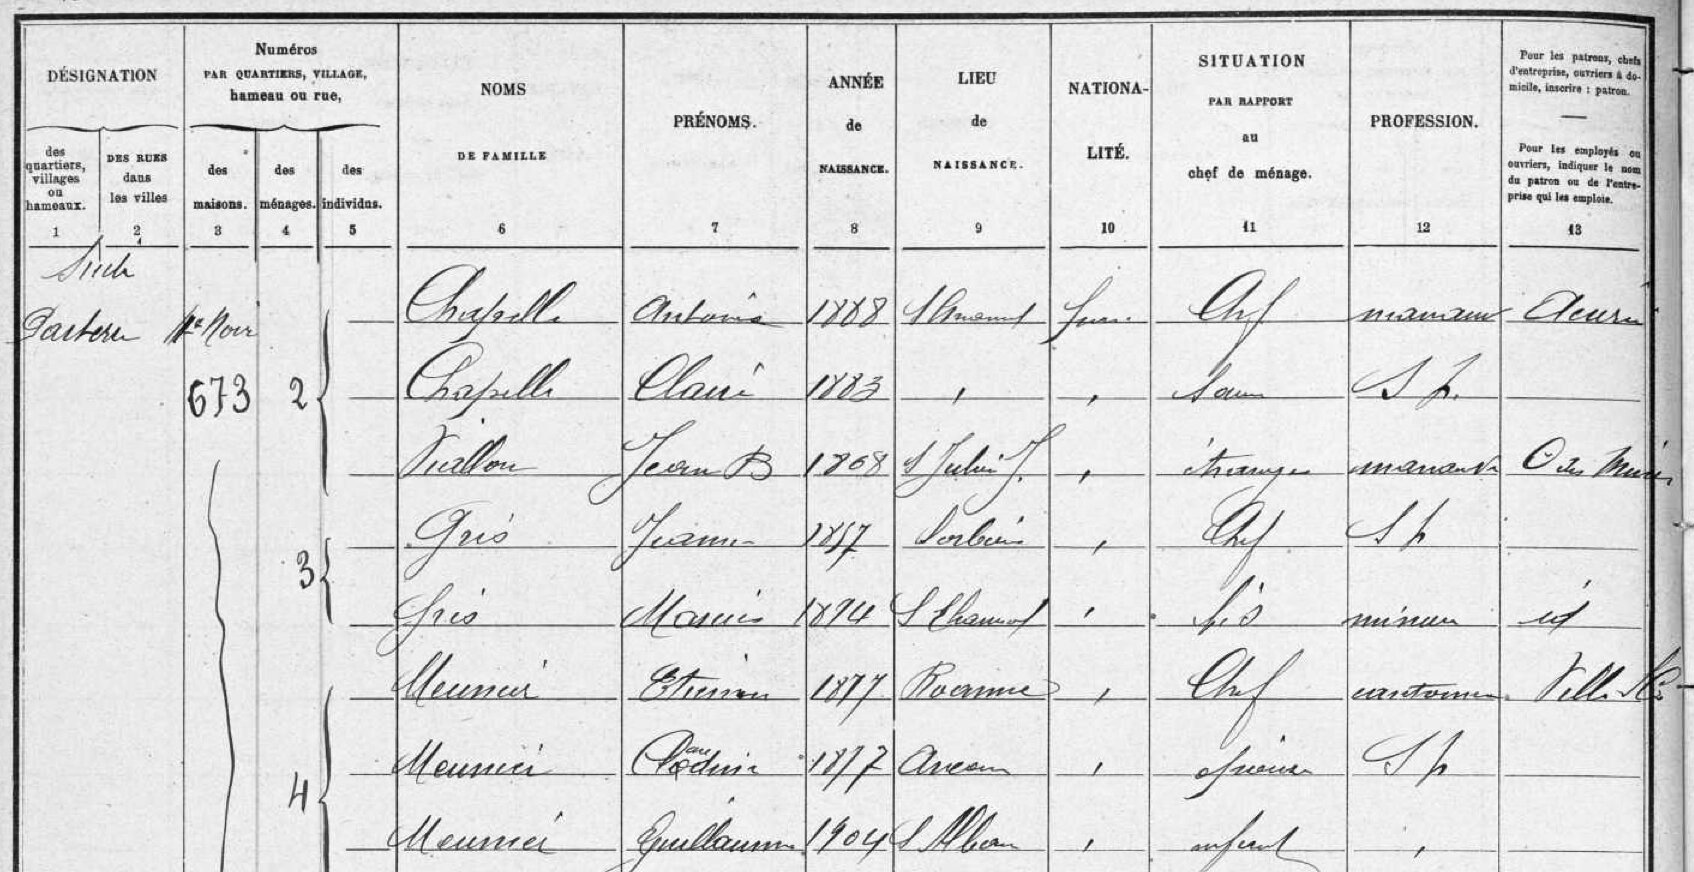 DÉSIGNATION
des quartiers, villages ou hameaux.
1
DES RUES dans les villes
2
Numéros
PAR QUARTIERS, VILLAGE,
hameau ou rue,
des maisons.
3
des ménages.
4
des individus.
5
NOMS
DE FAMILLE
6
PRÉNOMS.
7
ANNÉE
de
NAISSANCE.
8
LIEU
de
NAISSANCE.
9
NATIONA-
LITÉ.
10
SITUATION
PAR RAPPORT
au
chef de ménage.
11
PROFESSION.
12
Pour les patrons, chefs
d'entreprise, ouvriers à do-
micile, inscrire : patron.
—
Pour les employés ou
ouvriers, indiquer le nom
du patron ou de l'entre-
prise qui les emploie.
13
Chapelle Antoine 1888 Chef
Noir
673 2 Chapelle Claire 1883 , , S p.
Jean B 1868 S Julien J. , étranger
3 Gris Jeanne 1857 Sorbiers , Chef S p
Gris Marius 1894 S Chamond , fils mineur id
Meunier Etienne 1877 Roanne , Chef cantonnier
4 Meunier Claudine 1877 , S p
Meunier Guillaume 1904 S Alban , enfant ,